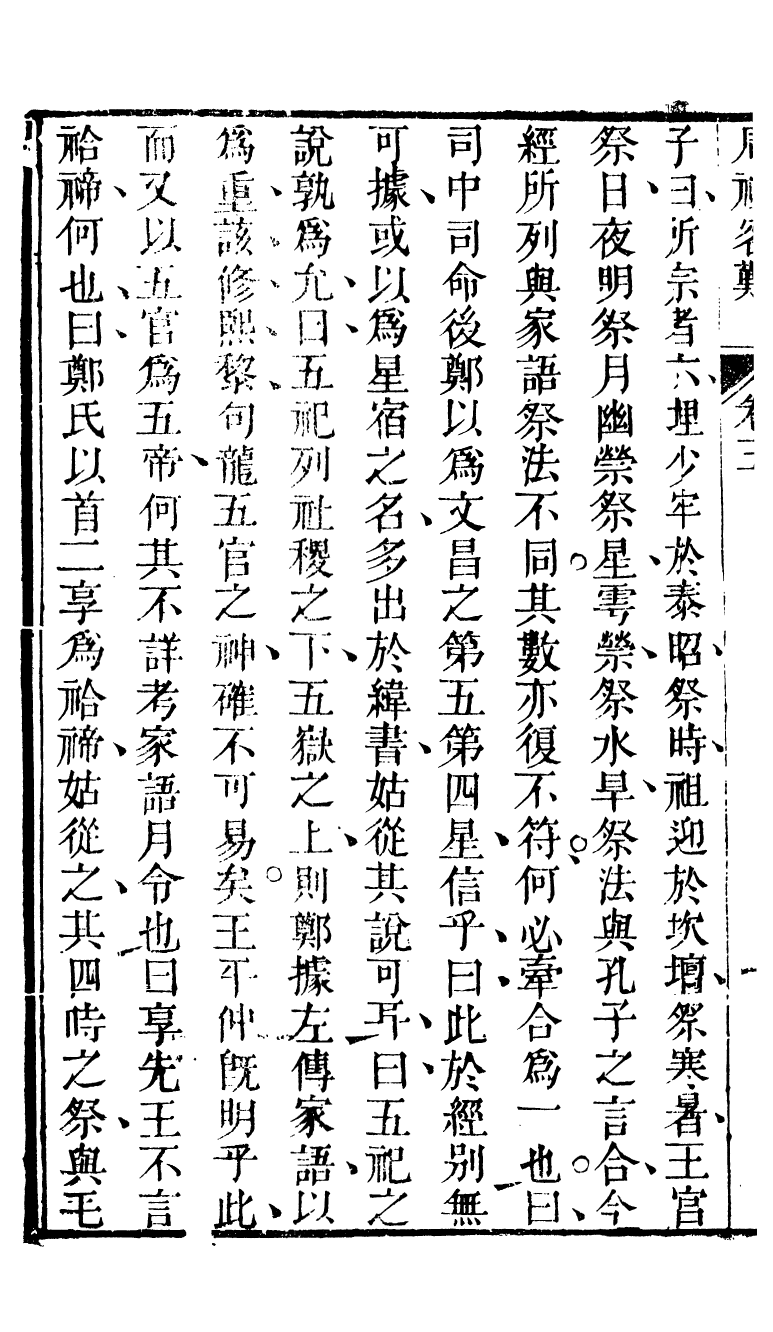 周禮客難 卷三
子曰所宗者六埋少牢於泰昭祭時祖迎於坎壇祭寒暑王宮
祭日夜明祭月幽禜祭星雩禜祭水旱祭法與孔子之言合今
經所列與家語祭法不同其數亦復不符何必牽合爲一也曰
司中司命後鄭以爲文昌之第五第四星信乎曰此於經別無
可據或以爲星宿之名多出於緯書姑從其說可耳曰五祀之
說孰爲允曰五祀列社稷之下五嶽之上則鄭據左傳家語以
爲重該修熙黎句龍五官之神確不可易矣王平仲旣明乎此
而又以五官爲五帝何其不詳考家語月令也曰享先王不言
祫禘何也曰鄭氏以首二享爲祫禘姑從之其四時之祭與毛